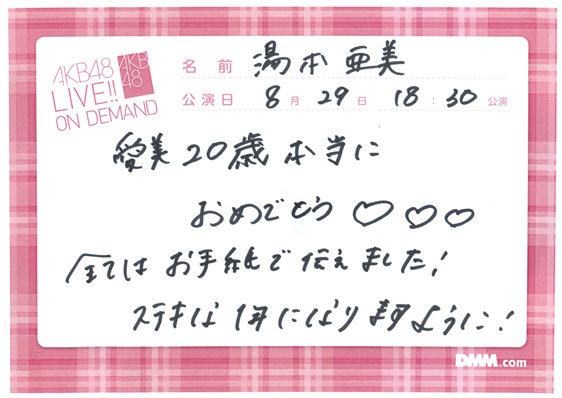 AKB48
LIVE!!
ON DEMAND
AKB
48
名前 湯本亜美
公演日 8月29日 18:30公演
愛美20歳本当に
おめでとう♡♡♡
全てはお手紙で伝えました!
ステキな1年になりますように!
DMM.com